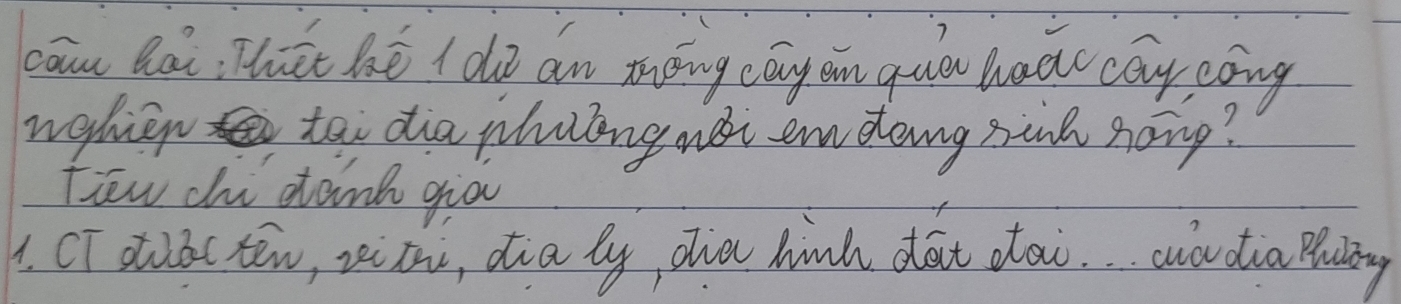 câu hỏi: Thiết kế 1 dự án trồng cây ăn quả hoặc cây công
nghiệp tại địa phương nơi em đang sinh sống?
Tiêu chí đánh giá
1. CT được tên, vị trí, địa lý, địa hình đất đai... của địa Phương